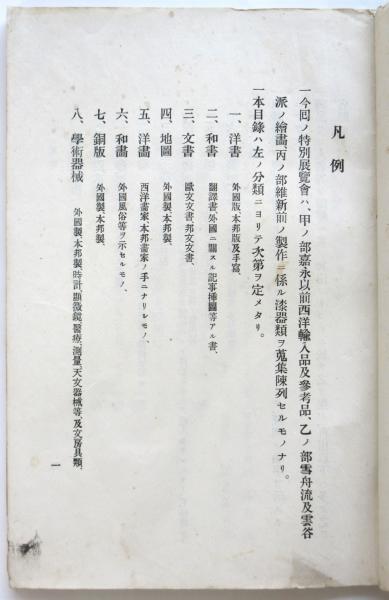 凡例
一今囘ノ特別展覽會ハ、甲ノ部嘉永以前西洋輸入品及參考品、乙ノ部雪舟流及雲谷
派ノ繪畵、丙ノ部維新前ノ製作ニ係ル漆器類ヲ蒐集陳列セルモノナリ。
一本目錄ハ左ノ分類ニヨリテ次第ヲ定メタリ。
一、洋書 外國版、本邦版及手寫、
二、和書 飜譯書外國ニ關スル記事挿圖等アル書、
三、文書 歐文文書、邦文文書、
四、地圖 外國製、本邦製、
五、洋畵 西洋畵家、本邦畵家ノ手ニナリシモノ、
六、和畵 外國風俗等ヲ示セルモノ、
七、銅版 外國製、本邦製、
八、學術器械 外國製、本邦製時計、顯微鏡、醫療、測量、天文器械等、及文房具類、
一